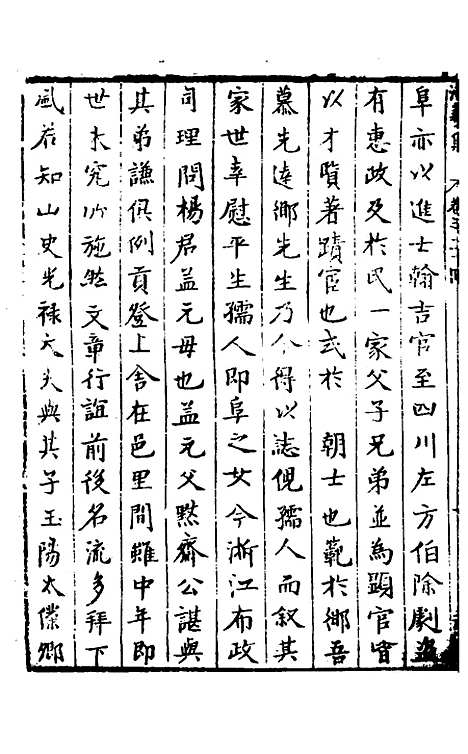 阜亦以進士翰吉官至四川左方伯除劇盜
有惠政及於民一家父子兄弟並為顯官皆
以才質著蹟官也式於　朝士也範於鄉吾
慕先達鄉先生乃今得以誌倪孺人而叙其
家世幸慰平生孺人即阜之女今浙江布政
司理問楊君益元母也益元父黙齋公諶與
其弟謙俱例貢登上舍在邑里間雖中年即
世未究所施然文章行誼前後名流多拜下
風若知山史光禄大夫與其子玉陽太僕卿